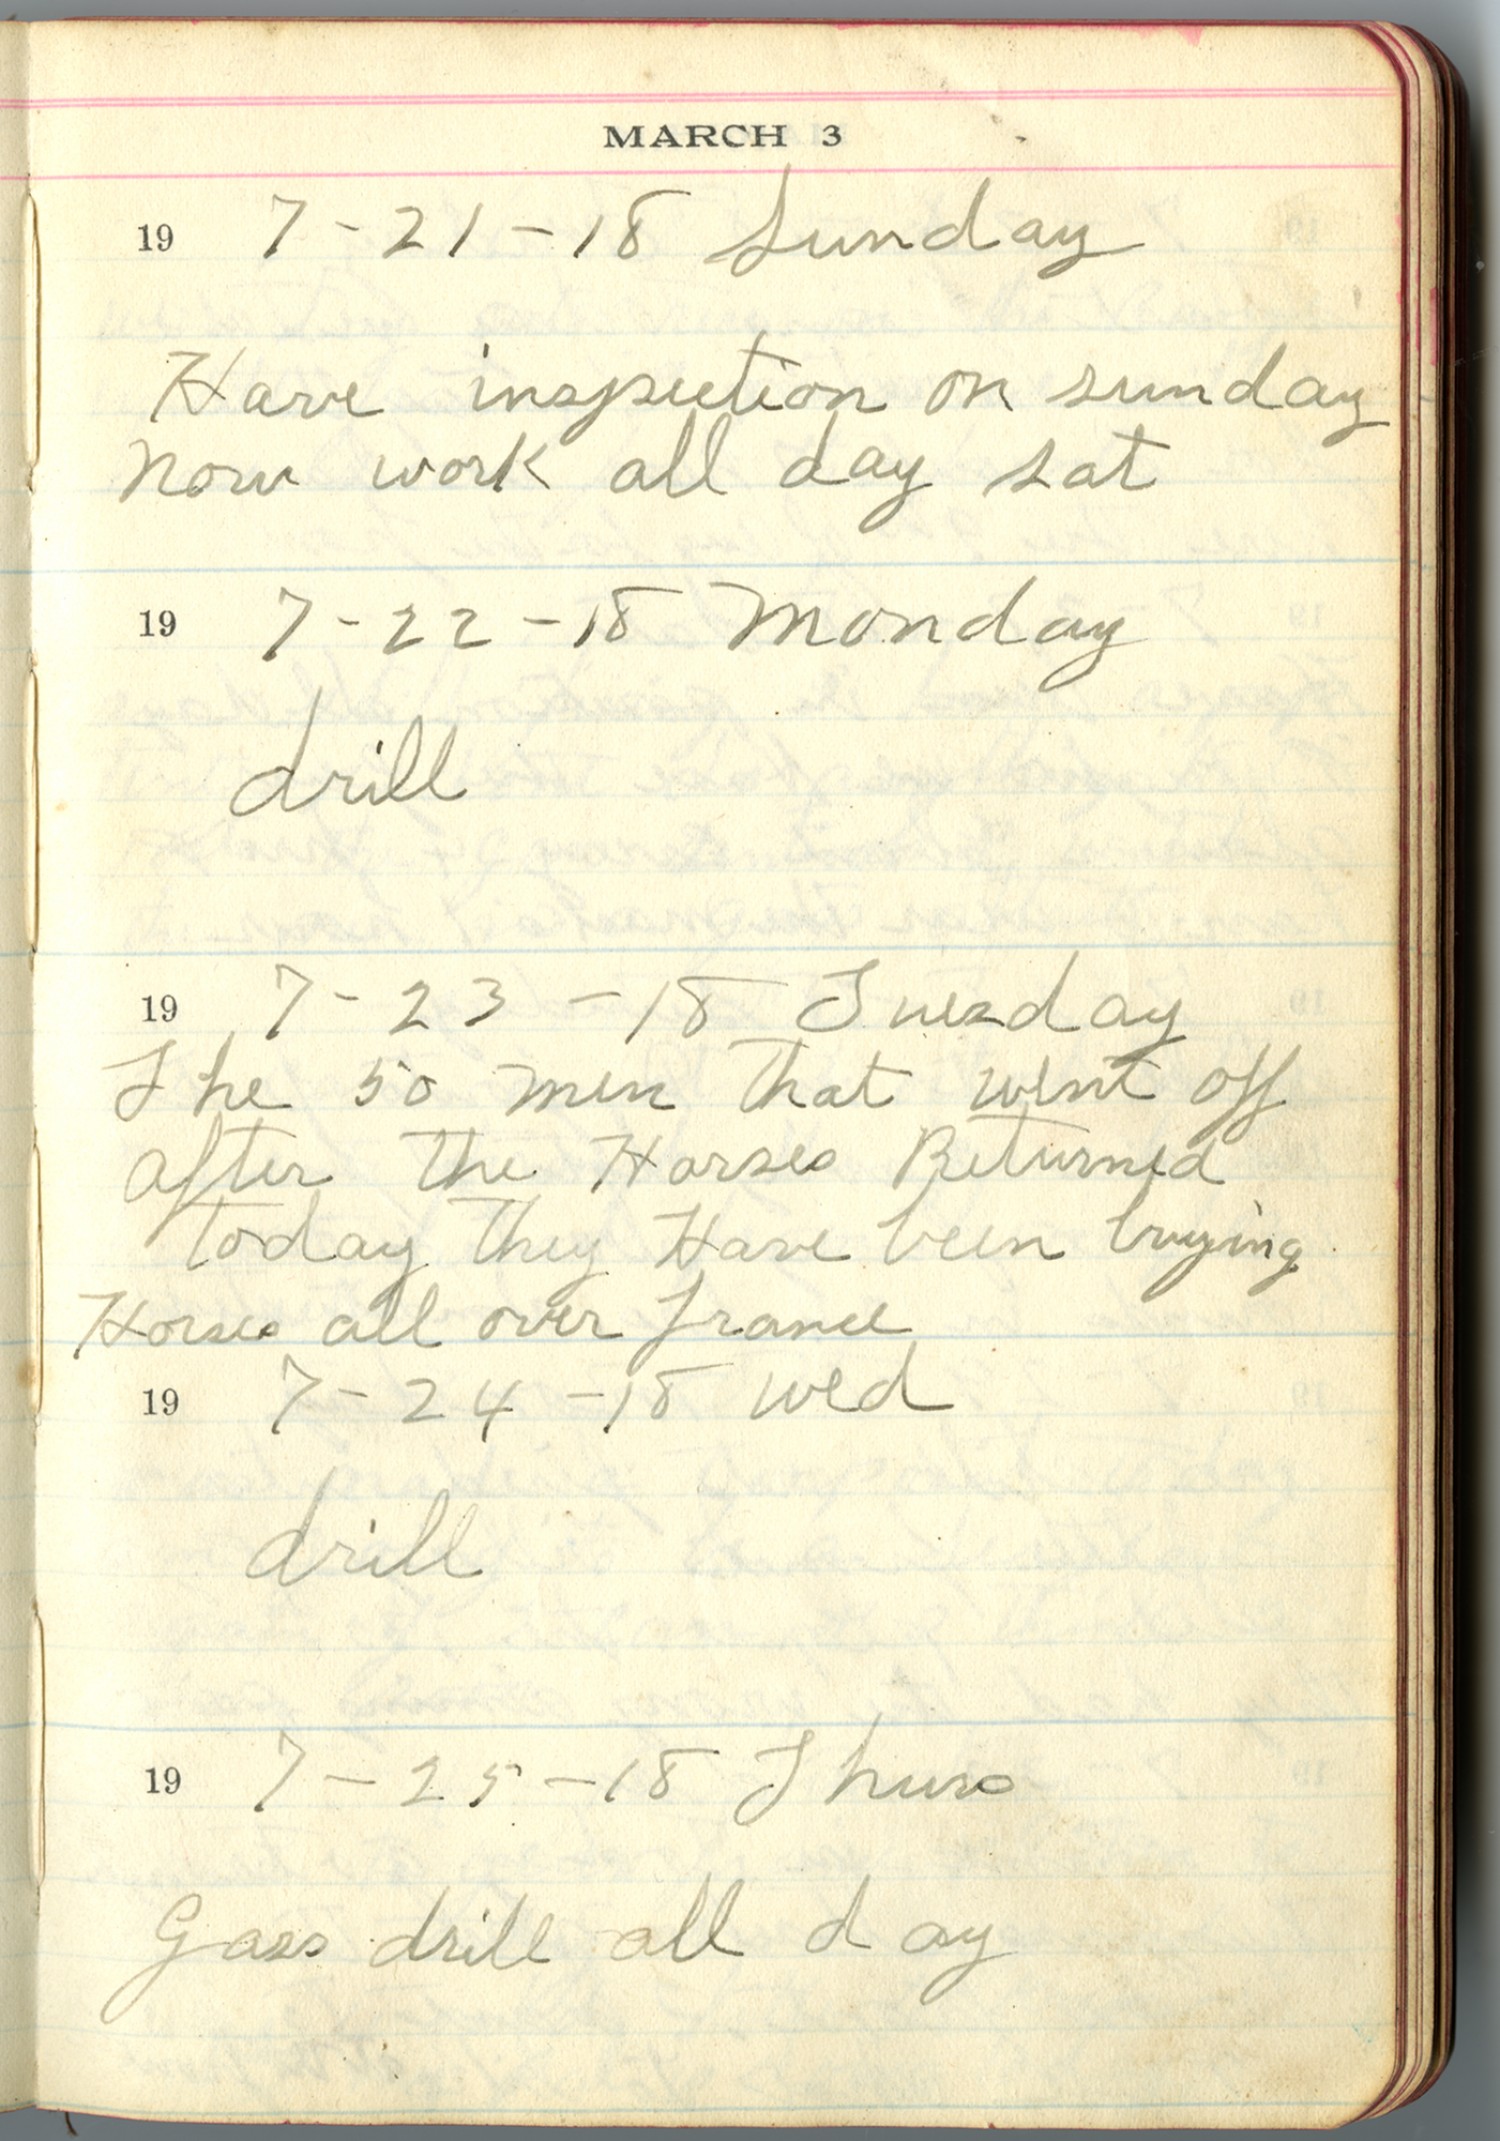 MARCH 3
19 7-21-18 Sunday
Have inspection on sunday
now work all day sat
19 7-22-18 Monday
drill
19 7-23-18 Tuesday
The 50 men that went off
after the Horses Returned
today they Have been buying
Horses all over france
19 7-24-18 wed
drill
19 7-25-18 Thurs
Gass drill all day